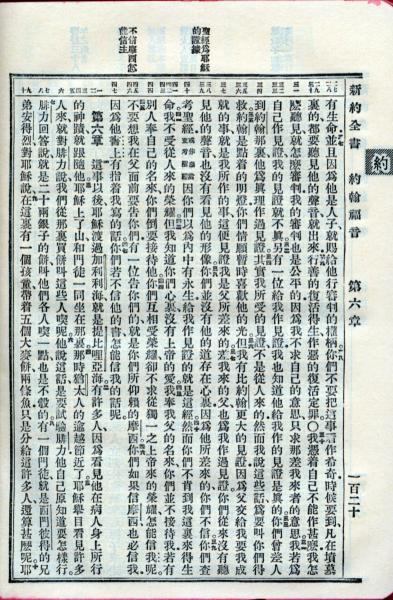 新約全書 約翰福音 第六章 一百二十
約
聖經爲耶穌
的證據
不信摩西怎
能信主
有生命並且因爲他是人子就賜給他行審判的權柄你們不要把這事言作希奇時候要到凡在墳墓
裏的都要聽見他的聲音就出來行善的復活得生作惡的復活定罪○我憑着自己不能作甚麼我怎
麼聽見就怎麼審判我的審判也是公平的因爲我不求自己的意思只求那差我來者的意思我若爲
自己作見證我的見證就不眞另有一位給我作見證我也知道他給我作的見證是眞的你們曾差人
到約翰那裏他爲眞理作過見證其實我所受的見證不是從人來的然而我說這些話爲要叫你們得
救約翰是點着的明燈你們情願暫時喜歡他的光但我有比約翰更大的見證因爲父交給我要我成
就的事就是我所作的事這便見證我是父所差來的差我來的父也爲我作過見證你們從來沒有聽
見他的聲音也沒有看見他的形像你們並沒有他的道存在心裏因爲他所差來的你們不信你們查
考聖經因你們以爲內中有永生給我作見證的就是這經然而你們不肯到我這裏來得生
命我不受從人來的榮耀但我知道你們心裏沒有上帝的愛我奉我父的名來你們並不接待我若有
別人奉自己的名來你們倒要接待他你們互相受榮耀卻不求從獨一之上帝來的榮耀怎能信我呢
不要想我在父面前要告你們有一位告你們的就是你們所仰賴的摩西你們如果信摩西也必信我
因爲他書上有指着我寫的話你們若不信他的書怎能信我的話呢
第六章 這事以後耶穌渡過加利利海就是提比哩亞海有許多人因爲看見他在病人身上所行
的神蹟就跟隨他耶穌上了山和門徒一同坐在那裏那時猶太人的逾越節近了耶穌舉目看見許多
人來就對腓力說我們從那裏買餅叫這些人喫呢他說這話是要試驗腓力他自己原知道要怎樣行
腓力回答說就是二十兩銀子的餅叫他們各人喫一點也是不彀的有一個門徒就是西門彼得的兄
弟安得烈對耶穌說在這裏有一個孩童帶着五個大麥餅兩條魚只是分給這許多人還算甚麼呢耶